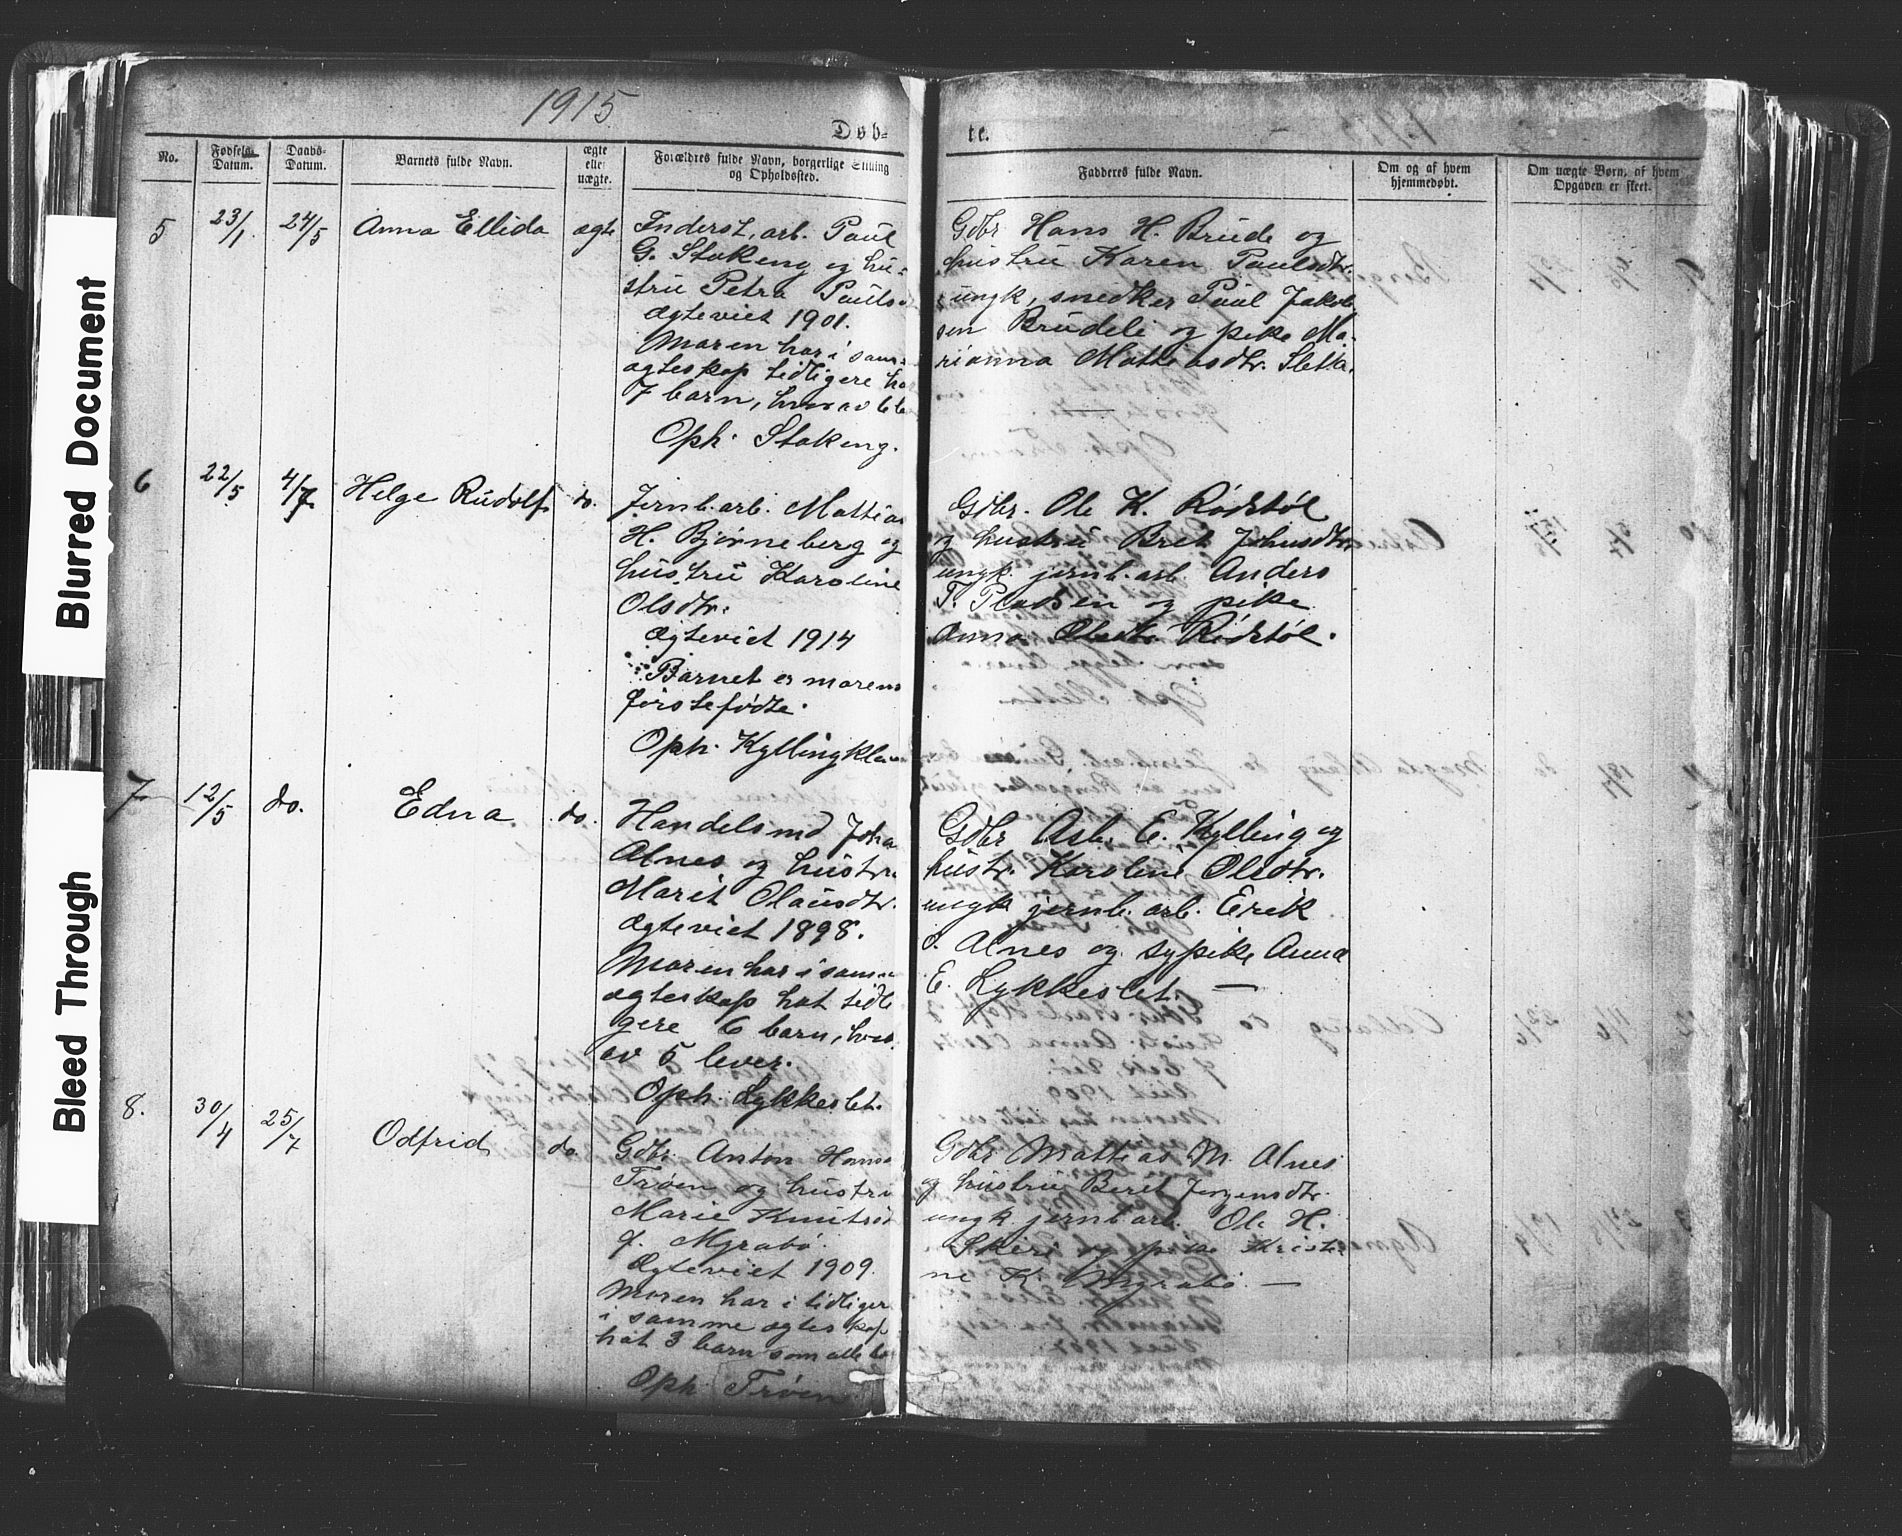 1915
Døb-
te.
No.
Fødsels-
Datum.
Daabs-
Datum.
Barnets fulde Navn.
ægte
eller
uægte.
Forældres fulde Navn, borgerlige Stilling
og Opholdssted.
Faddernes fulde Navn.
Om og af hvem
hjemmedøbt.
Om uægte Børn, af hvem
Opgaven er skeet.
5
23/1
24/5
Anna Ellida
ægte
Inderst, arb. Paul
G. Stokeng og hu-
stru Petra Pauls
Ægteviet 1901.
Moren har i sam
ægteskap tidligere
7 barn, hvorav 6
Oph. Stokeng.
Gdbr Hans H. Brude og
hustru Karen Paulsdtr.
ungk, snedker Paul Jakob
sen Brudeli og pike Ma-
rianna Mattiasdtr. Sletta.
6
22/5
4/7
Helge Rudolf
do.
Jernb.arb. Mattias
H. Bjørneberg og
hustru Karoline
Olsdtr.
Ægteviet 1914
Barnet er morens
førstefødte.
Oph. Kylling
Gdbr. Ole K. Rødstøl
og hustru Bret Johnsdtr,
ungk. jernb.arb. Anders
T. Pladsen og pike
Anna Olsdtr. Rødstøl.
7
12/5
do.
Edna
do.
Handelsmd Joha
Alnes og hustru
Marit Olausdtr.
Ægteviet 1898.
Moren har i sam
ægteskap hat tidli
gere 6 barn, hvor
av 5 lever.
Oph. Lykkeslet.
Gdbr Asb. E. Kylling og
hustr. Karoline Olsdtr.
ungk jernb. arb. Erik
J. Alnes og sypike Anna
E. Lykkeslet.
8.
30/4
25/7
Odfrid
do
Gdbr. Anton Hans
Trøen og hustru
Marie Knuts
f. Myrabø.
Ægteviet 1909.
Moren har i tidliger
i samme ægteskap
hat 3 barn som alle
Oph. Trøen
Gdbr Mattias M. Alnes
og hustru Beret Jørgensdtr.
ungk jernb arb. Ole H.
Skiri og pike Kristi
ne K. Myrabø.
Blurred Document
Bleed Through